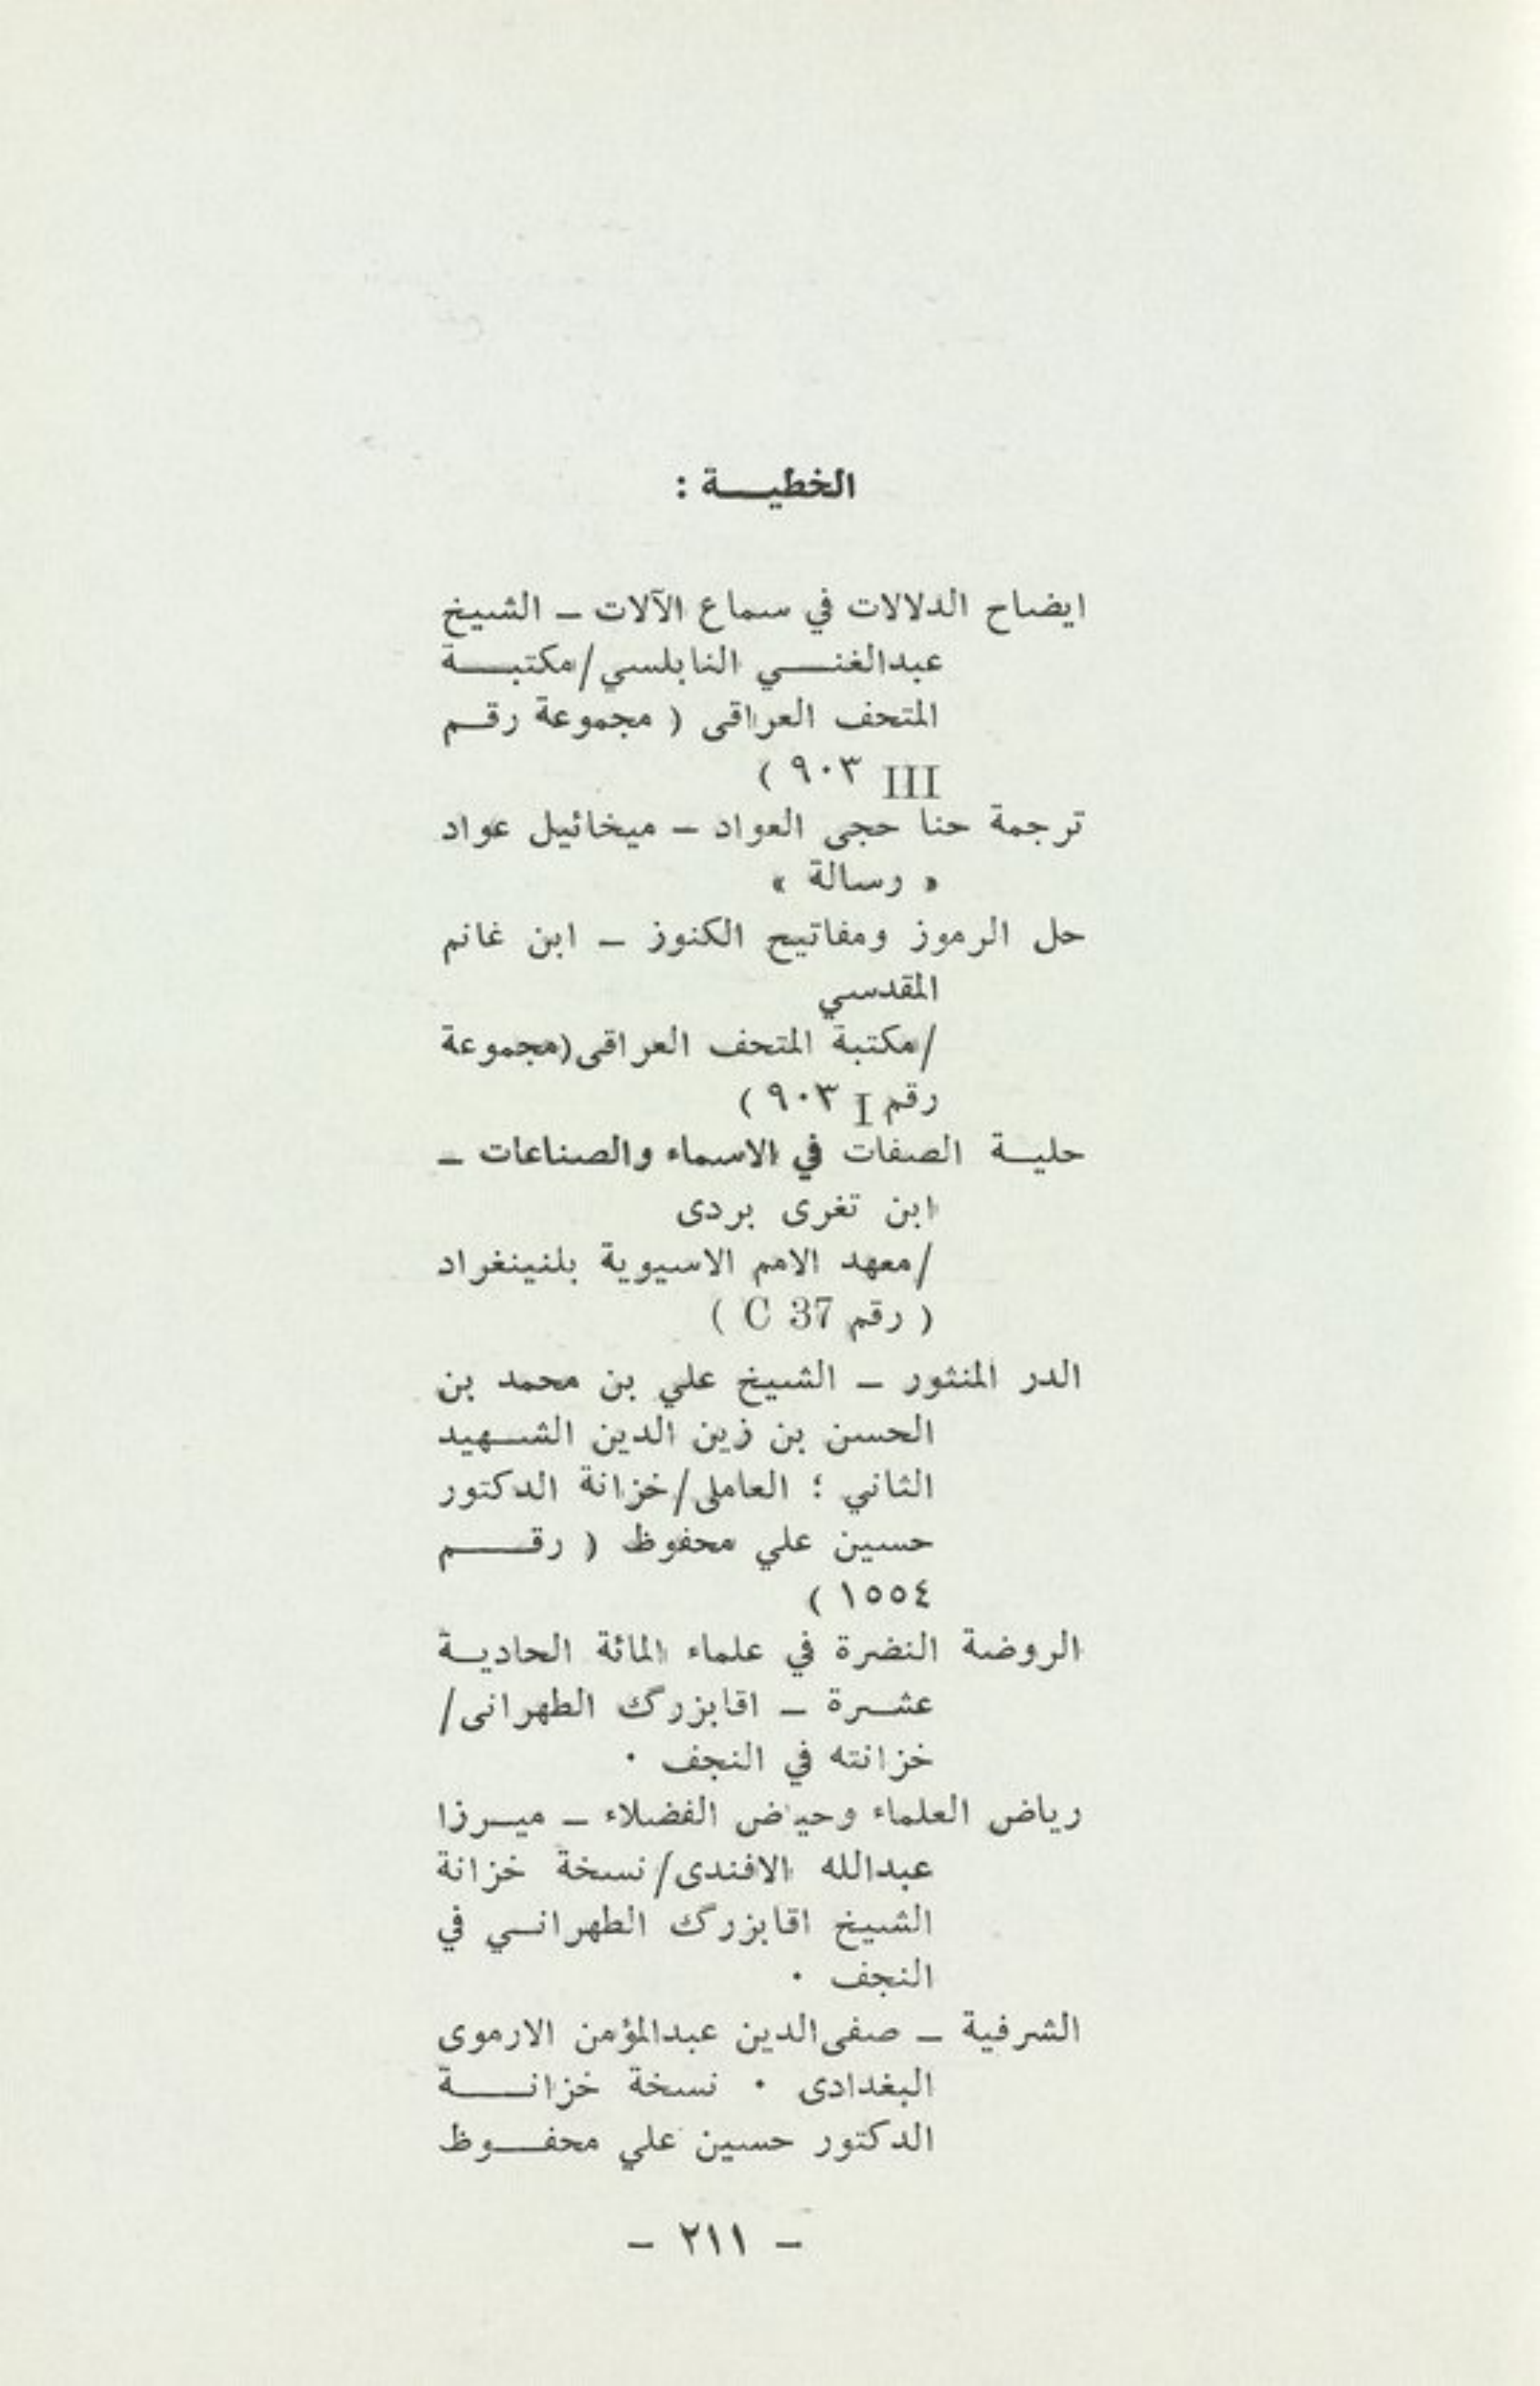 الخطيـــة :
ايضاح الدلالات في سماع الآلات ــ الشيخ
عبدالغنـــي النابلسي/مكتبـــة
المتحف العراقى ( مجموعة رقـم
III ٩٠٣ )
ترجمة حنا حجى العواد ــ ميخائيل عواد
« رسالة »
حل الرموز ومفاتيح الكنوز ــ ابن غانم
المقدسي
/مكتبة المتحف العراقى(مجموعة
رقم I ٩٠٣ )
حليـــة الصفات في الاسماء والصناعات ــ
ابن تغرى بردى
/معهد الامم الاسيوية بلنينغراد
( رقم C 37 )
الدر المنثور ــ الشيخ علي بن محمد بن
الحسن بن زين الدين الشـــهيد
الثاني ؛ العاملى/خزانة الدكتور
حسين علي محفوظ ( رقـــــم
١٥٥٤ )
الروضة النضرة في علماء المائة الحاديـة
عشــرة ــ اقابزرگ الطهرانى/
خزانته في النجف ٠
رياض العلماء وحياض الفضلاء ــ ميــرزا
عبدالله الافندى/نسخة خزانة
الشيخ اقابزرگ الطهرانـــي في
النجف ٠
الشرفية ــ صفى‌الدين عبدالمؤمن الارموى
البغدادى ٠ نسخة خزانـــــة
الدكتور حسين علي محفـــوظ
ــ ٢١١ ــ